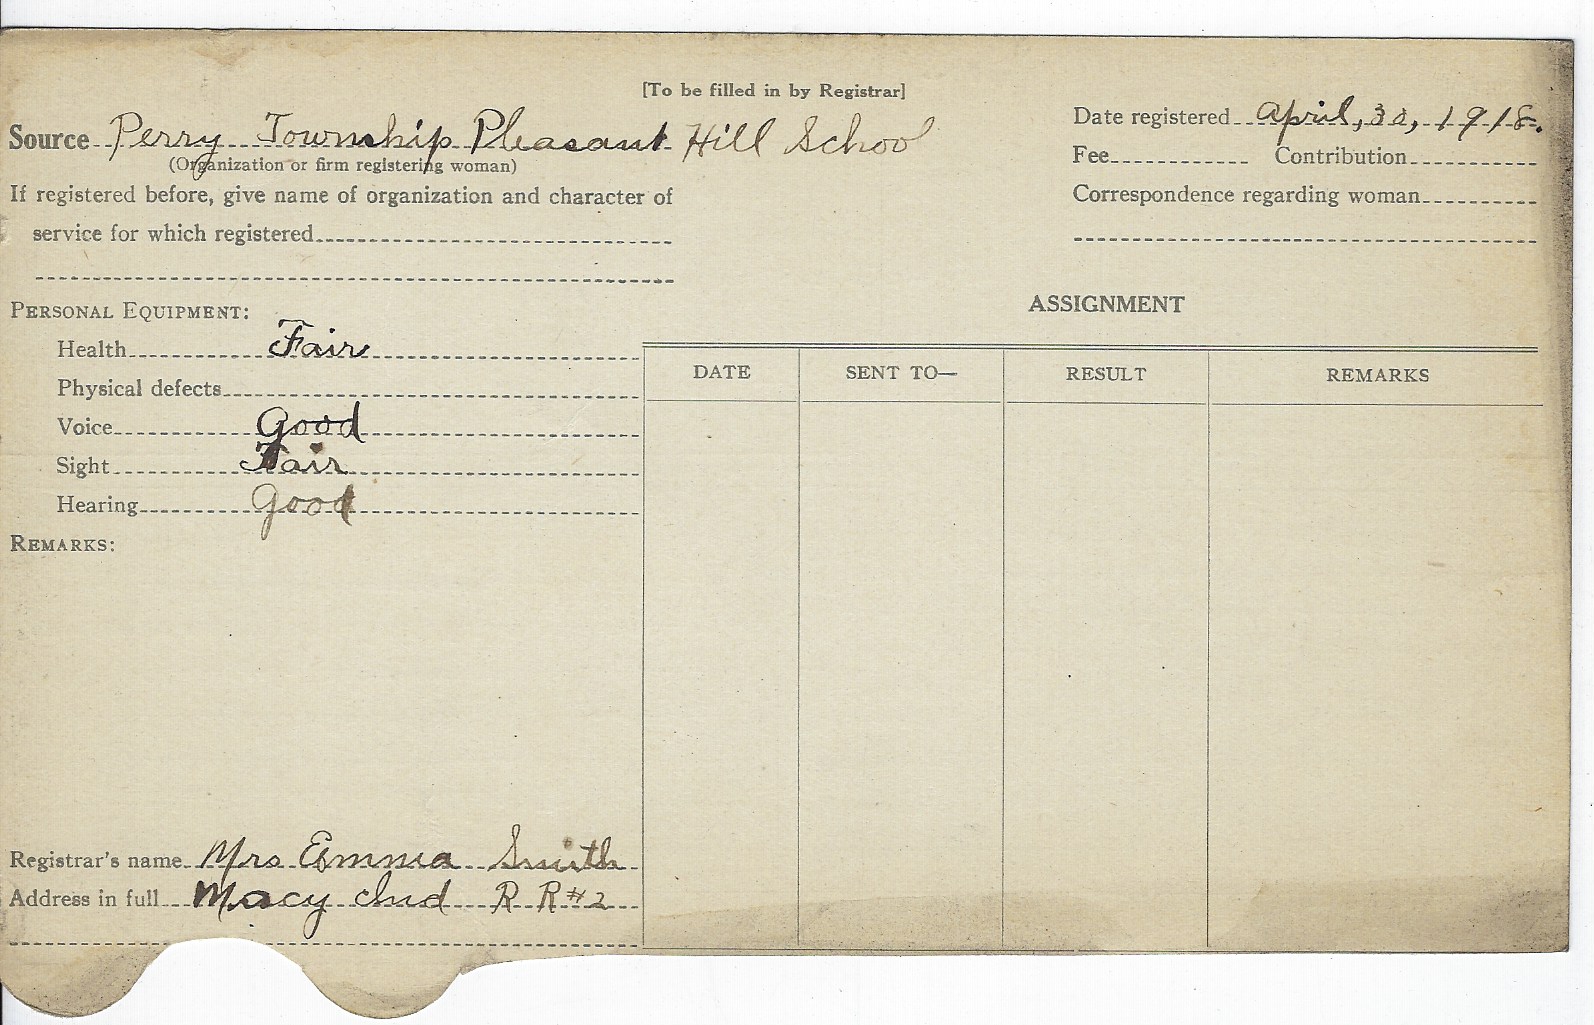 [To be filled in by Registrar]
Source Perry Township Pleasant Hill School
(Organization or firm registering woman)
Date registered April, 30, 1918.
Fee Contribution
If registered before, give name of organization and character of
service for which registered
Correspondence regarding woman
PERSONAL EQUIPMENT:
Health Fair
Physical defects
Voice Good
Sight Fair
Hearing Good
REMARKS:
ASSIGNMENT
DATE SENT TO— RESULT REMARKS
Registrar's name Mrs Emma Smith
Address in full Macy Ind R R #2